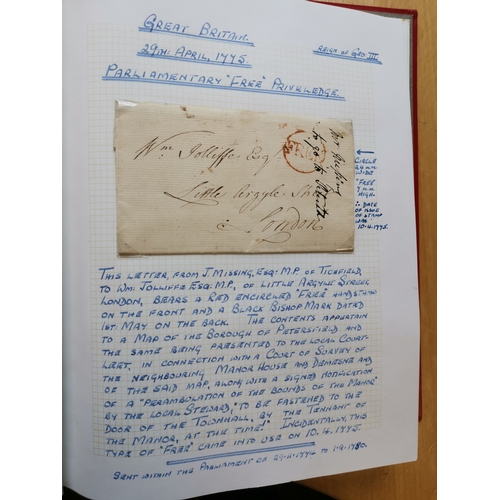 GREAT BRITAIN.
29TH: APRIL, 1775.
REIGN OF GEO III
PARLIAMENTARY "FREE" PRIVELEDGE.
Wm Jolliffe Esqr
Little Argyle Street
London
Mr Missing
CIRCLE
WIDE
"FREE"
HIGH.
DATE
OF ISSUE
OF STAMP
WAS
10.4.1775.
THIS LETTER, FROM J. MISSING, ESQ: M.P. OF TICEFIELD,
TO WM: JOLLIFFE ESQ: M.P., OF LITTLE ARGYLE STREET,
LONDON, BEARS A RED ENCIRCLED "FREE" HANDSTAMP
ON THE FRONT AND A BLACK BISHOP MARK DATED
1ST MAY ON THE BACK. THE CONTENTS APPERTAIN
TO A MAP OF THE BOROUGH OF PETERSFIELD AND
THE SAME BEING PRESENTED TO THE LOCAL COURT-
LEET, IN CONNECTION WITH A COURT OF SURVEY OF
THE NEIGHBOURING MANOR HOUSE AND DEMESNE AND
OF THE SAID MAP, ALONG WITH A SIGNED NOTIFICATION
OF A "PERAMBULATION OF THE BOUNDS OF THE MANOR"
BY THE LOCAL STEWARD, "TO BE FASTENED TO THE
DOOR OF THE TOWNHALL, BY THE TENNANT OF
THE MANOR, AT THE TIME!" INCIDENTALLY, THIS
TYPE OF "FREE" CAME INTO USE ON 10.4.1775.
SENT WITHIN THE PARLIAMENT OF 29.11.1774 TO 1.9.1780.